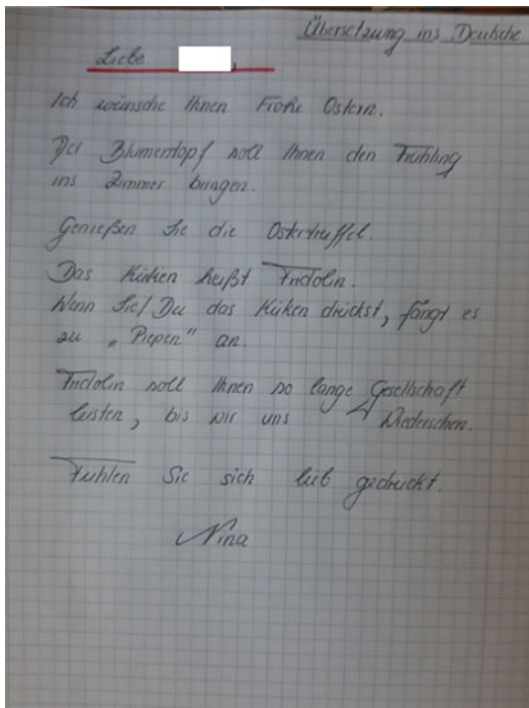 Übersetzung ins Deutsche
Liebe ,
Ich wünsche Ihnen Frohe Ostern.
Der Blumentopf soll Ihnen den Frühling
ins Zimmer bringen.
Genießen Sie die Ostertrüffel.
Das Küken heißt Fridolin.
Wenn Sie/Du das Küken drückst, fängt es
zu „Piepen" an.
Fridolin soll Ihnen so lange Gesellschaft
leisten, bis wir uns Wiedersehen.
Fühlen Sie sich lieb gedrückt.
Nina